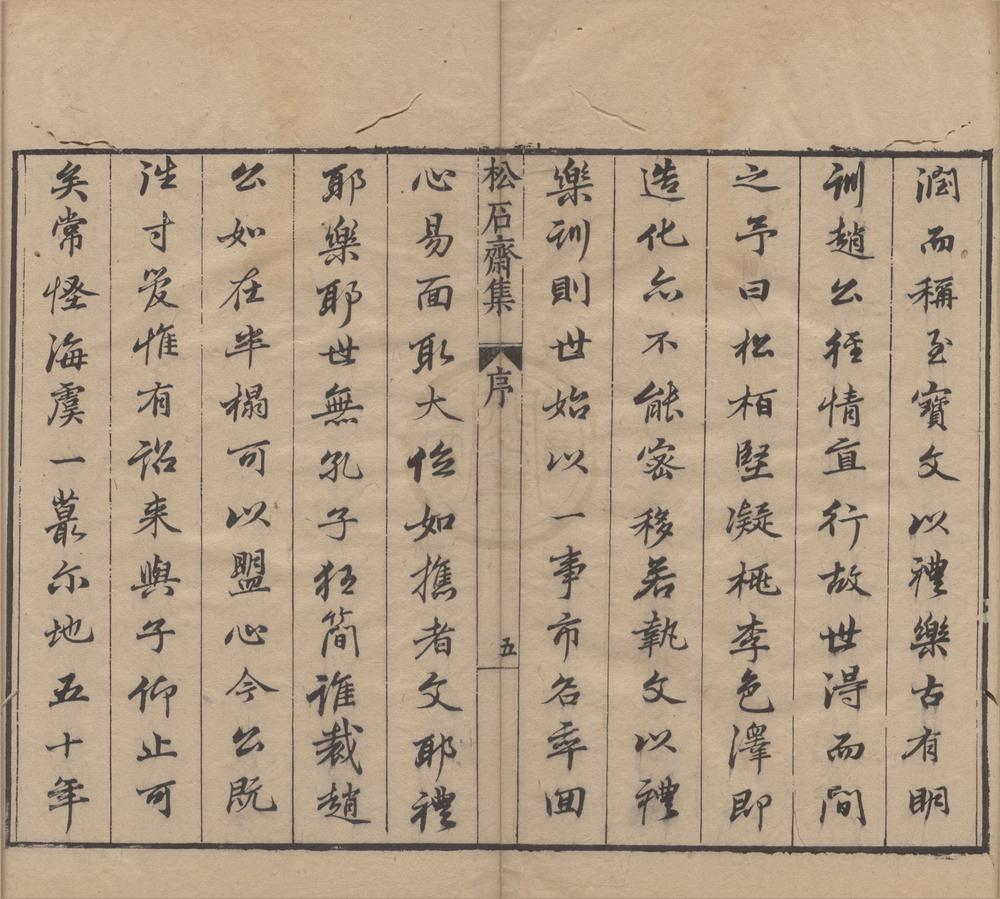 潤而稱至寶文以禮樂古有明
訓趙公徑情直行故世得而間
之予曰松栢堅凝桃李色澤即
造化亦不能密移若執文以禮
樂訓則世始以一事市名率囬
心易面取大位如撨者文耶禮
松石齋集 序 五
耶樂耶世無孔子狂簡誰裁趙
公如在半榻可以盟心今公既
逝寸管惟有詔来與予仰止可
矣常怪海虞一蕞尔地五十年